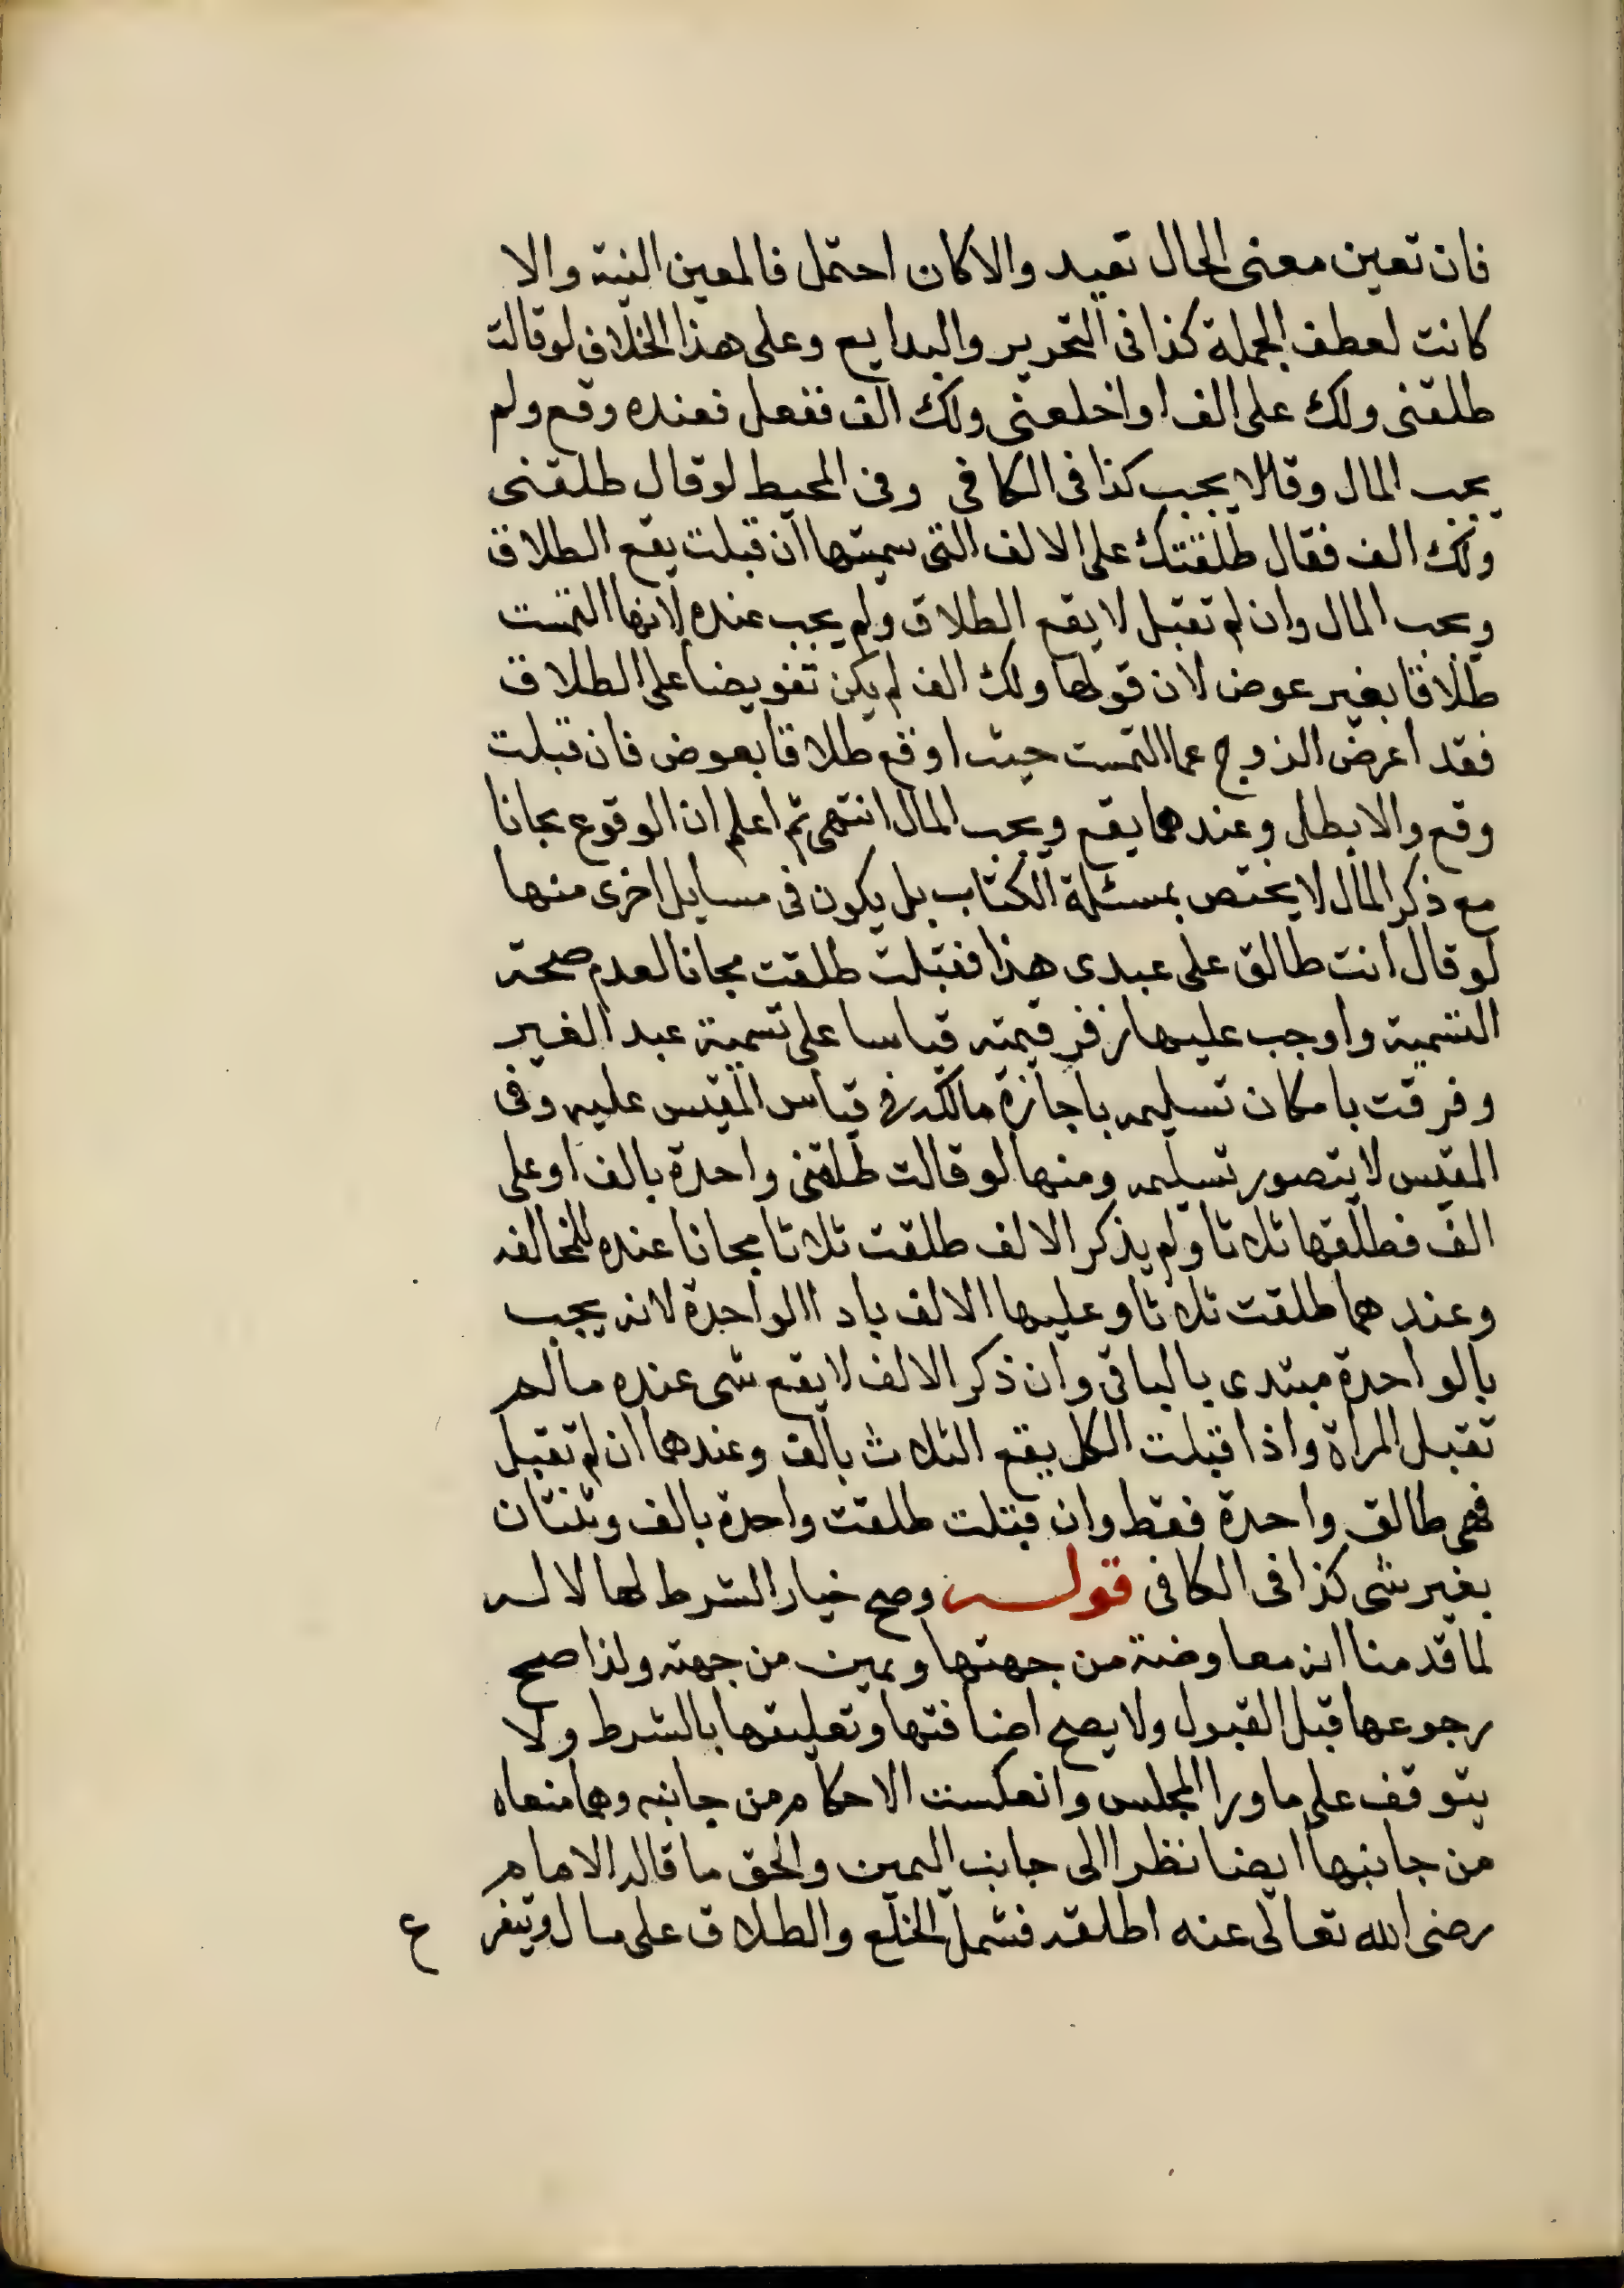 فان تعين معنى الحال تقيد والا كان احتمل فالمعين النية والا
كانت لعطف الجملة كذا فى التحرير والبدايع وعلى هذا الخلاف لو قالت
طلقنى ولك على الف او اخلعنى ولك الف ففعل فعنده وقع ولم
يجب المال وقالا يجب كذا فى الكافى وفى المحيط لو قال طلقنى
ولك الف فقال طلقتك على الالف التى سميتها ان قبلت يقع الطلاق
ويجب المال وان لم تقبل لا يقع الطلاق ولم يجب عنده لانها التمست
طلاقا بغير عوض لان قولها ولك الف لم يكن تفويضا على الطلاق
فقد اعرض الزوج عما التمست حيث اوقع طلاقا بعوض فان قبلت
وقع والا بطل وعندهما يقع ويجب المال انتهى ثم اعلم ان الوقوع مجانا
مع ذكر المال لا يختص بمسئلة الكتاب بل يكون فى مسايل اخرى منها
لو قال انت طالق على عبدى هذا فقبلت طلقت مجانا لعدم صحة
التسمية واوجب عليها زفر قيمته قياسا على تسمية عبد الغير
وفرقت بامكان تسليمه باجازة مالكه فى قياس المقيس عليه وفى
المقيس لا يتصور تسليمه ومنها لو قالت طلقنى واحدة بالف او على
الف فطلقها ثلاثا ولم يذكر الالف طلقت ثلاثا مجانا عنده للمخالفه
وعندهما طلقت ثلاثا وعليها الالف باد االواحدة لانه يجيب
بالواحدة مبتدى بالباقى وان ذكر الالف لا يقع شى عنده مالم
تقبل المراة واذا قبلت الكل يقع الثلاث بالف وعندهما ان لم تقبل
فهى طالق واحدة فقط وان قبلت طلقت واحدة بالف وثنتان
بغير شى كذا فى الكافى قوله وصح خيار الشرط لها لا له
لما قدمنا انه معاوضة من جهتها ويمين من جهته ولذا صح
رجوعها قبل القبول ولا يصح اضافتها وتعليقها بالشرط ولا
يتوقف على ما ورا المجلس وانعكست الاحكام من جانبه وهما منعاه
من جانبها ايضا نظرا الى جانب اليمين والحق ما قاله الامام
رضى الله تعالى عنه اطلقه فشمل الخلع والطلاق على مال وتيفر
ع